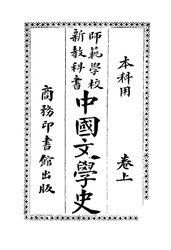 本科用
卷上
師範學校
新教科書
中國文學史
商務印書館出版